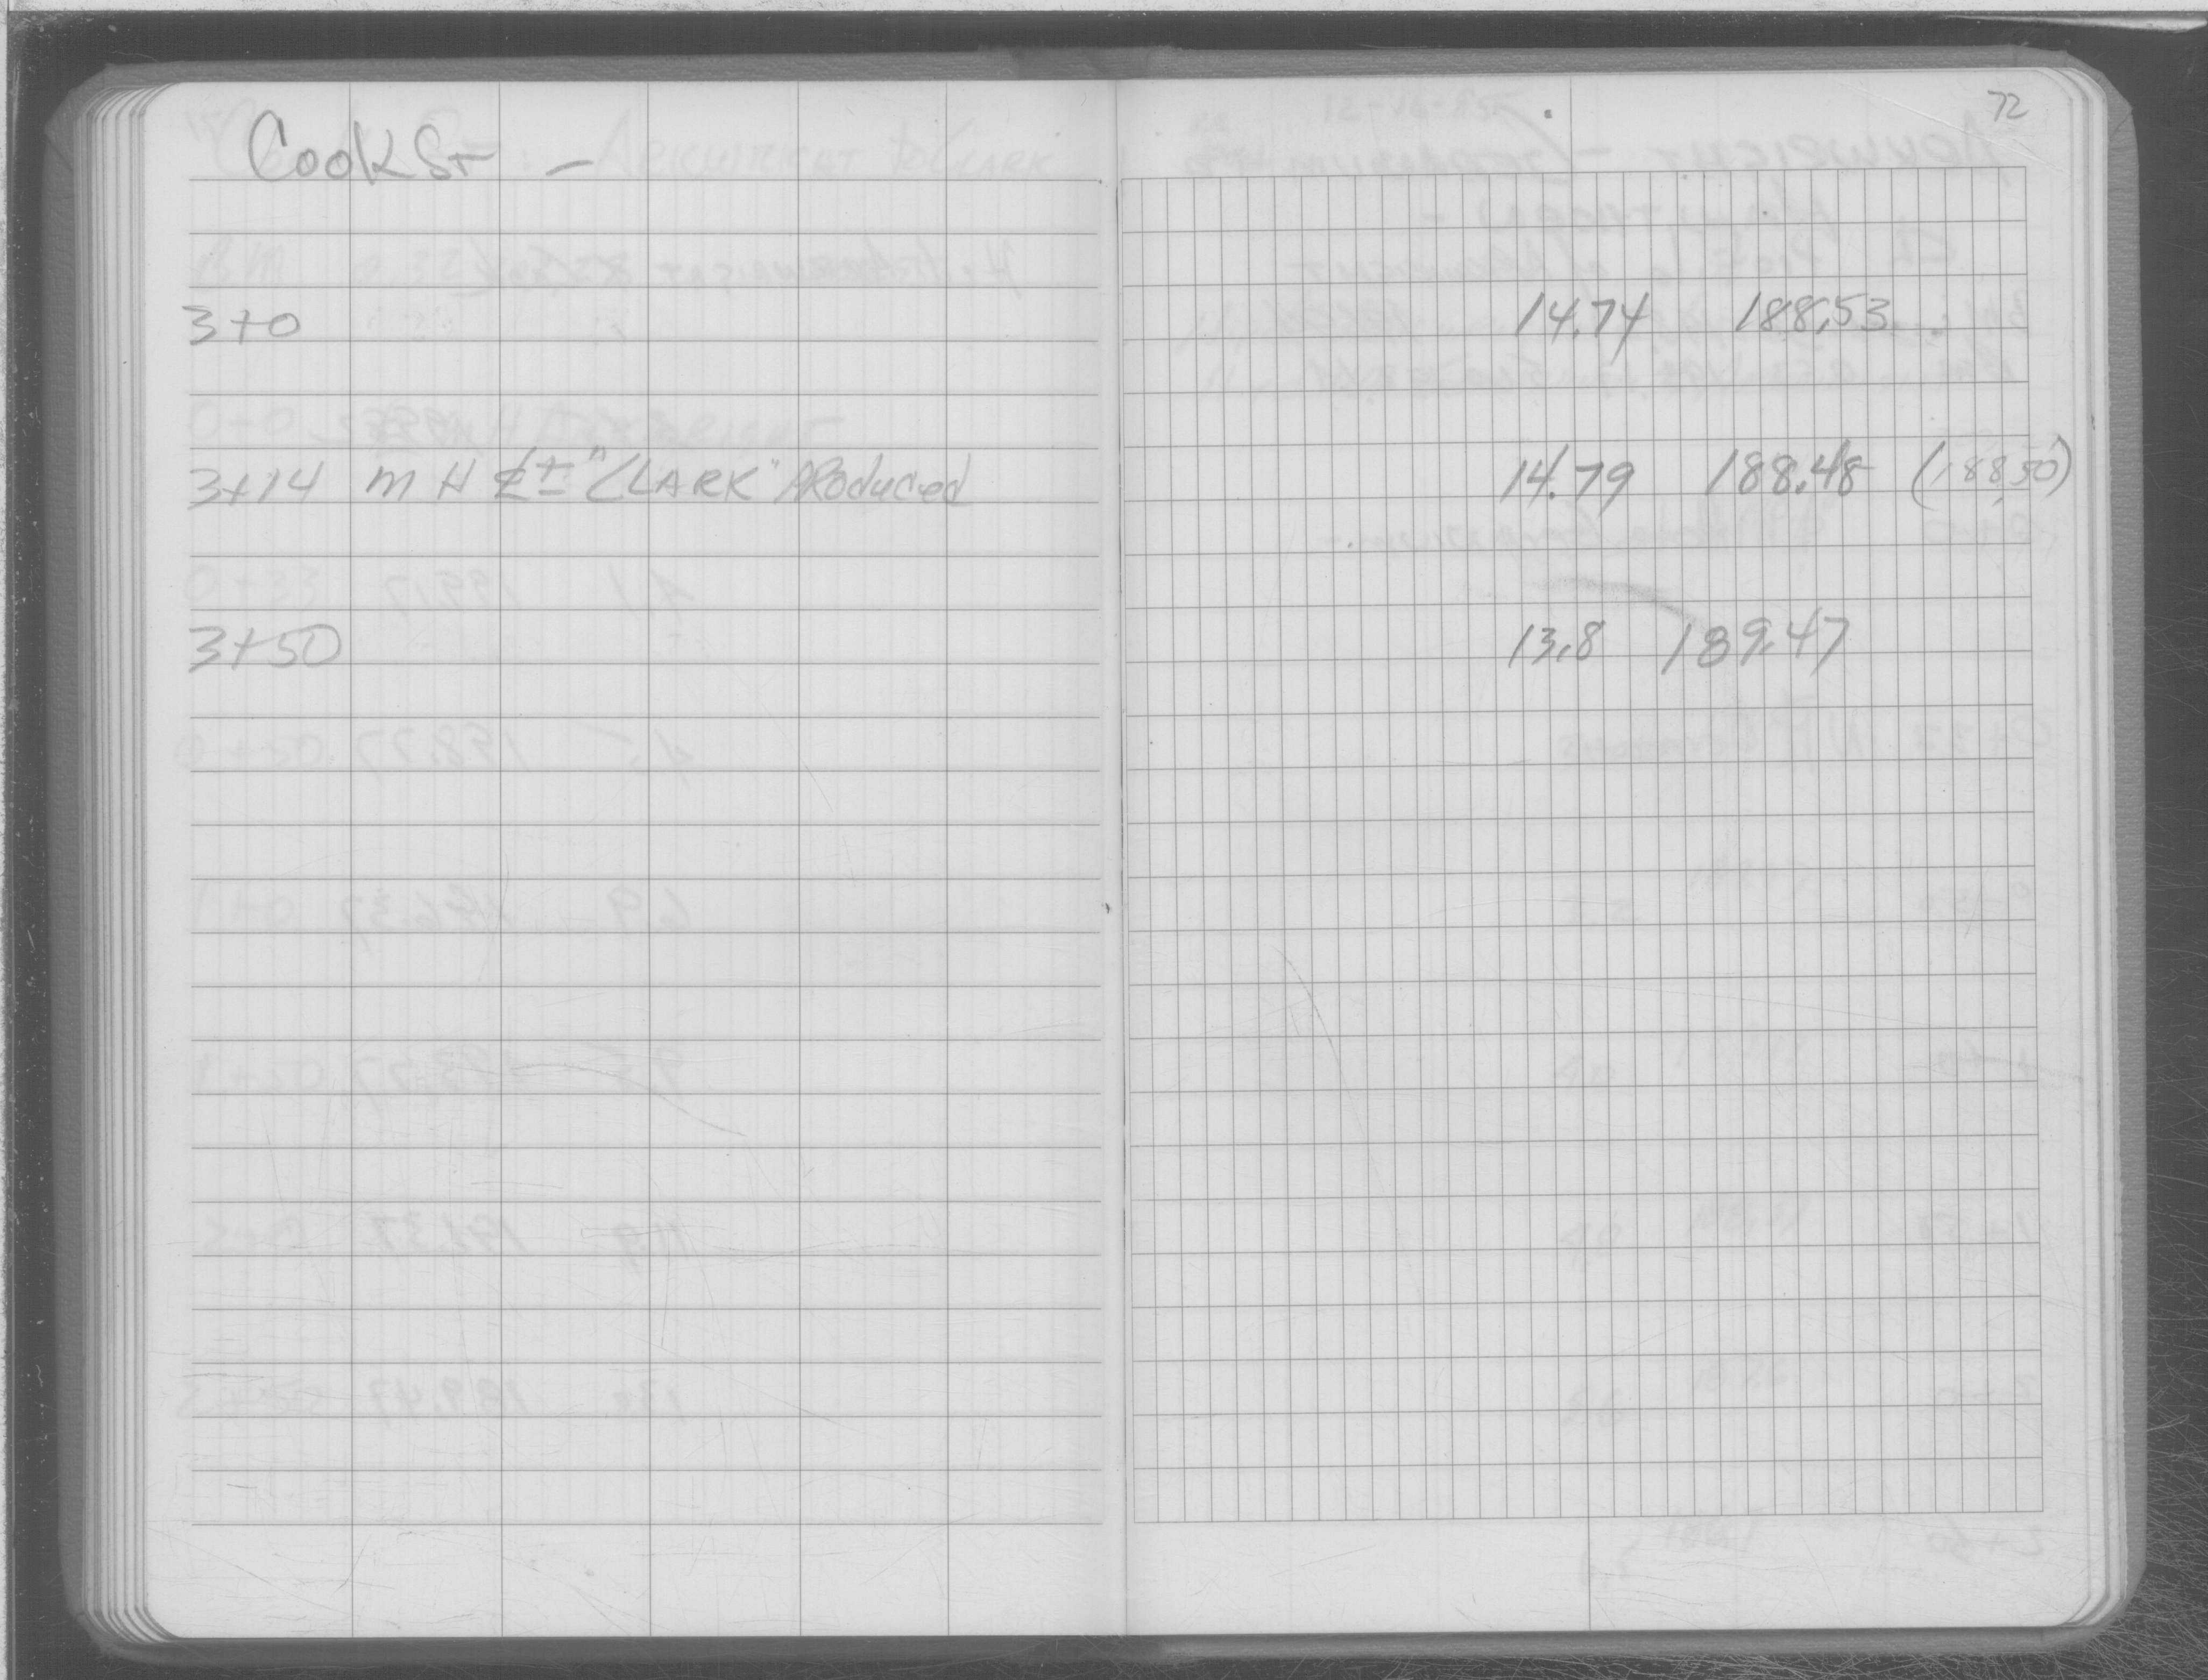 72
Cook St -
3+0 14.74 188.53
3+14 MH ℄± "CLARK" PRoduced 14.79 188.48 (188.50)
3+50 13.8 189.47